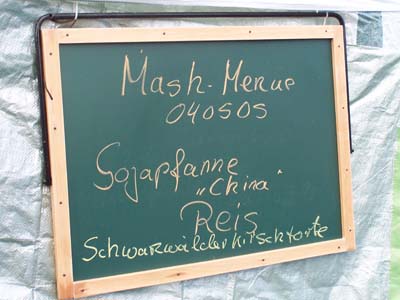 Mash-Menue
040505
Sojapfanne
„China“
Reis
Schwarzwälderkirschtorte